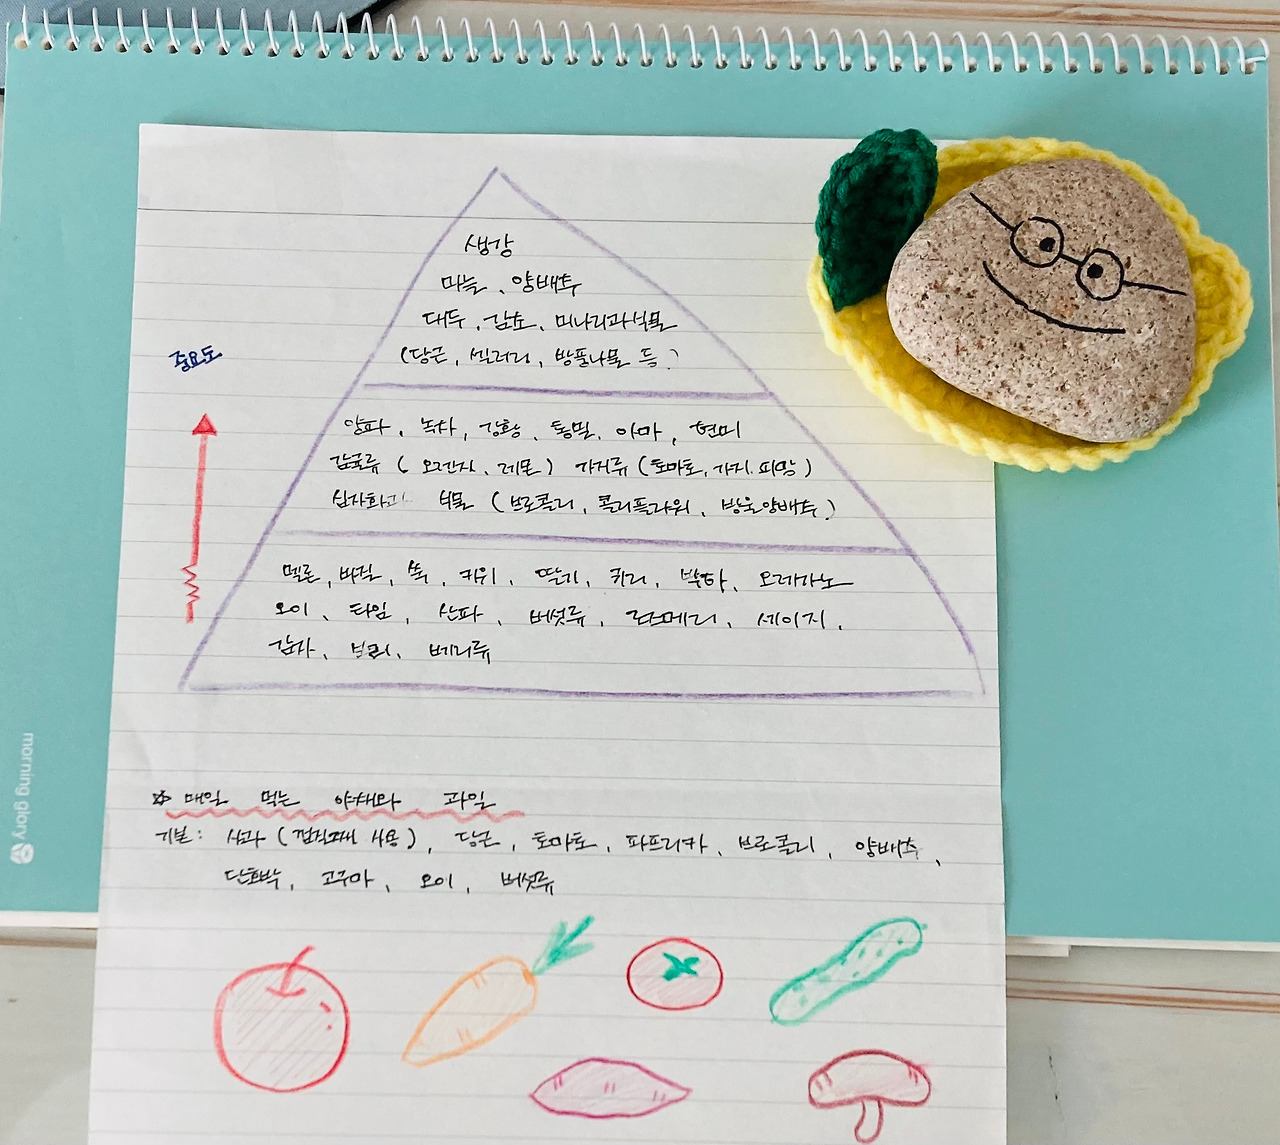 생강
마늘, 양배추
대두, 감초, 미나리과식물
(당근, 셀러리, 방풀나물 등)
중요도
양파, 녹차, 강황, 통밀, 아마, 현미
감귤류 (오렌지, 레몬) 가지류 (토마토, 가지, 피망)
십자화과 식물 (브로콜리, 콜리플라워, 방울양배추)
멜론, 바질, 쑥, 키위, 딸기, 커리, 박하, 오레가노
오이, 타임, 산파, 버섯류, 로즈메리, 세이지,
감자, 보리, 베리류
☆ 매일 먹는 야채와 과일
기본: 사과 (껍질째 사용), 당근, 토마토, 파프리카, 브로콜리, 양배추,
단호박, 고구마, 오이, 버섯류
morning glory